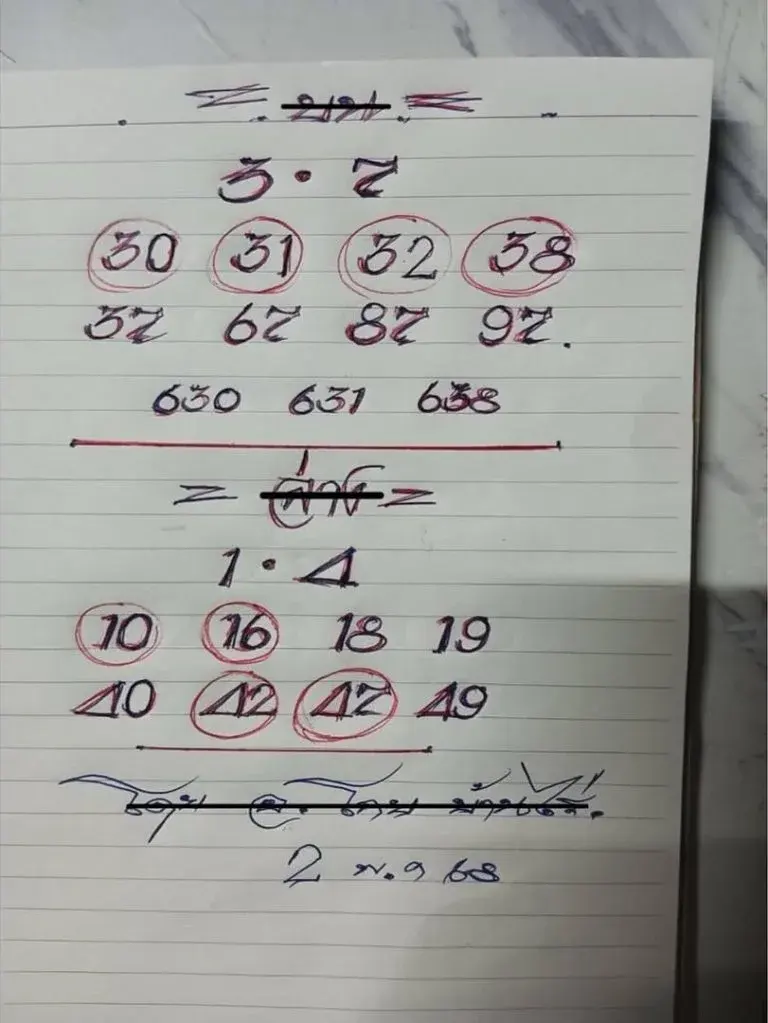 = บน =
3 · 7
30 31 32 38
37 67 87 97.
630 631 638
= ล่าง =
1 · 4
10 16 18 19
40 42 47 49
โดย อ. บ้านไร่.
2 พ.ค 68